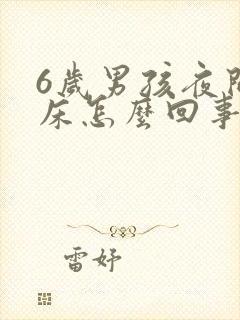 6歲男孩夜間
床怎麼回事
雷妤